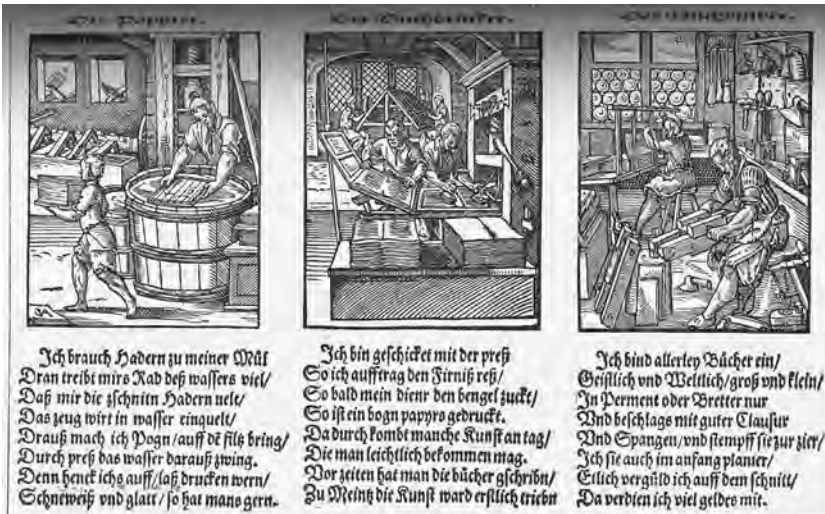 Jch brauch Hadern zu meiner Mül
Dran treibt mirs Rad deß waſſers viel/
Daß mir die zſchnitn Hadern nelt/
Das zeug wirt in waſſer einquelt/
Drauß mach ich Pogn/auff dē filtz bring/
Durch preß das waſſer darauß zwing.
Denn henck ichs auff/laß drucken wern/
Schneweiß vnd glatt/ſo hat mans gern.
Jch bin geſchicket mit der preß
So ich aufftrag den Firniß reß/
So bald mein dienr den bengel zuckt/
So iſt ein bogn papyrs gedruckt.
Da durch kombt manche Kunſt an tag/
Die man leichtlich bekommen mag.
Vor zeiten hat man die bücher gſchribn/
Zu Meintz die Kunſt ward erſtlich triebn
Jch bind allerley Bücher ein/
Geiſtlich vnd Weltlich/groß vnd klein/
Jn Perment oder Bretter nur
Vnd beſchlags mit guter Clauſur
Vnd Spangen/vnd ſtempff ſie zur zier/
Jch ſie auch im anfang planier/
Etlich vergüld ich auff dem ſchnitt/
Da verdien ich viel geldes mit.